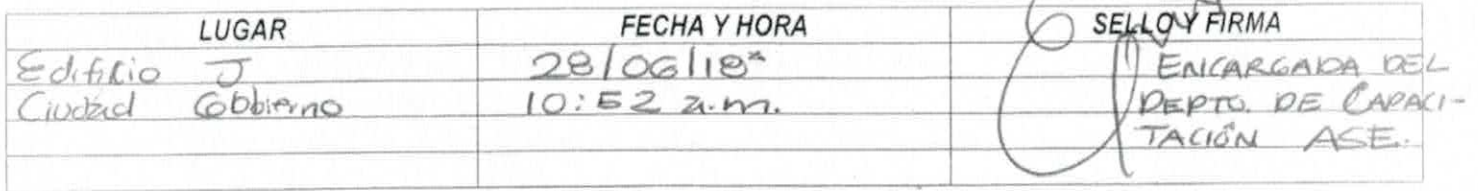 LUGAR FECHA Y HORA SELLO Y FIRMA
Edificio J 28/06/18 ENCARGADA DEL
Ciudad Gobbierno 10:52 a.m. DEPTO. DE CAPACI-
TACIÓN ASE.